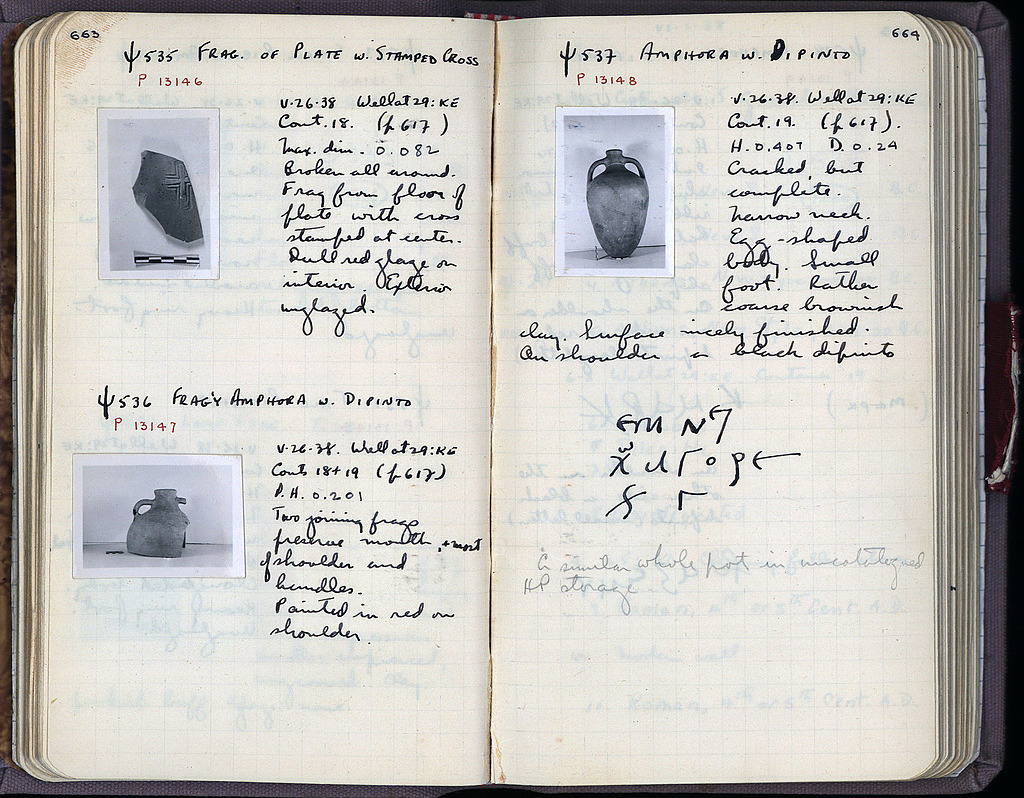 663
ψ535 FRAG. OF PLATE W. STAMPED CROSS
P 13146
V·26·38 Well at 29:ΚΕ
Cont. 18. (p 617)
Max. dim. 0.082
Broken all around.
Frag from floor of
plate with cross
stamped at center.
Dull red glaze on
interior. Exterior
unglazed.
ψ536 FRAG'Y AMPHORA W. DIPINTO
P 13147
V·26·38. Well at 29:ΚΕ
Conts 18+19 (p 617)
P.H. 0.201
Two joining frags
preserve mouth, + most
of shoulder and
handles.
Painted in red on
shoulder.
664
ψ537 AMPHORA W. DIPINTO
P 13148
V·26·38. Well at 29:ΚΕ
Cont. 19. (p 617).
H. 0.407 D. 0.24
Cracked, but
complete.
Narrow neck.
Egg-shaped
body. Small
foot. Rather
coarse brownish
clay. Surface nicely finished.
On shoulder a black dipinto
A similar whole pot in uncatalogued
HP storage